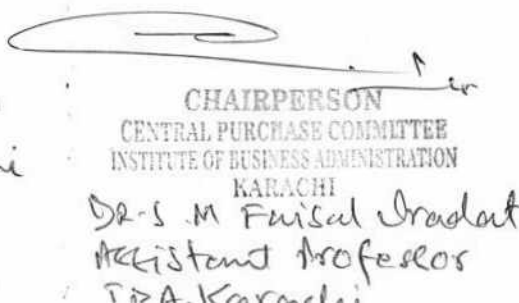 CHAIRPERSON
CENTRAL PURCHASE COMMITTEE
INSTITUTE OF BUSINESS ADMINISTRATION
KARACHI
Dr. S. M Faisal Iradat
Assistant Professor
IBA, Karachi